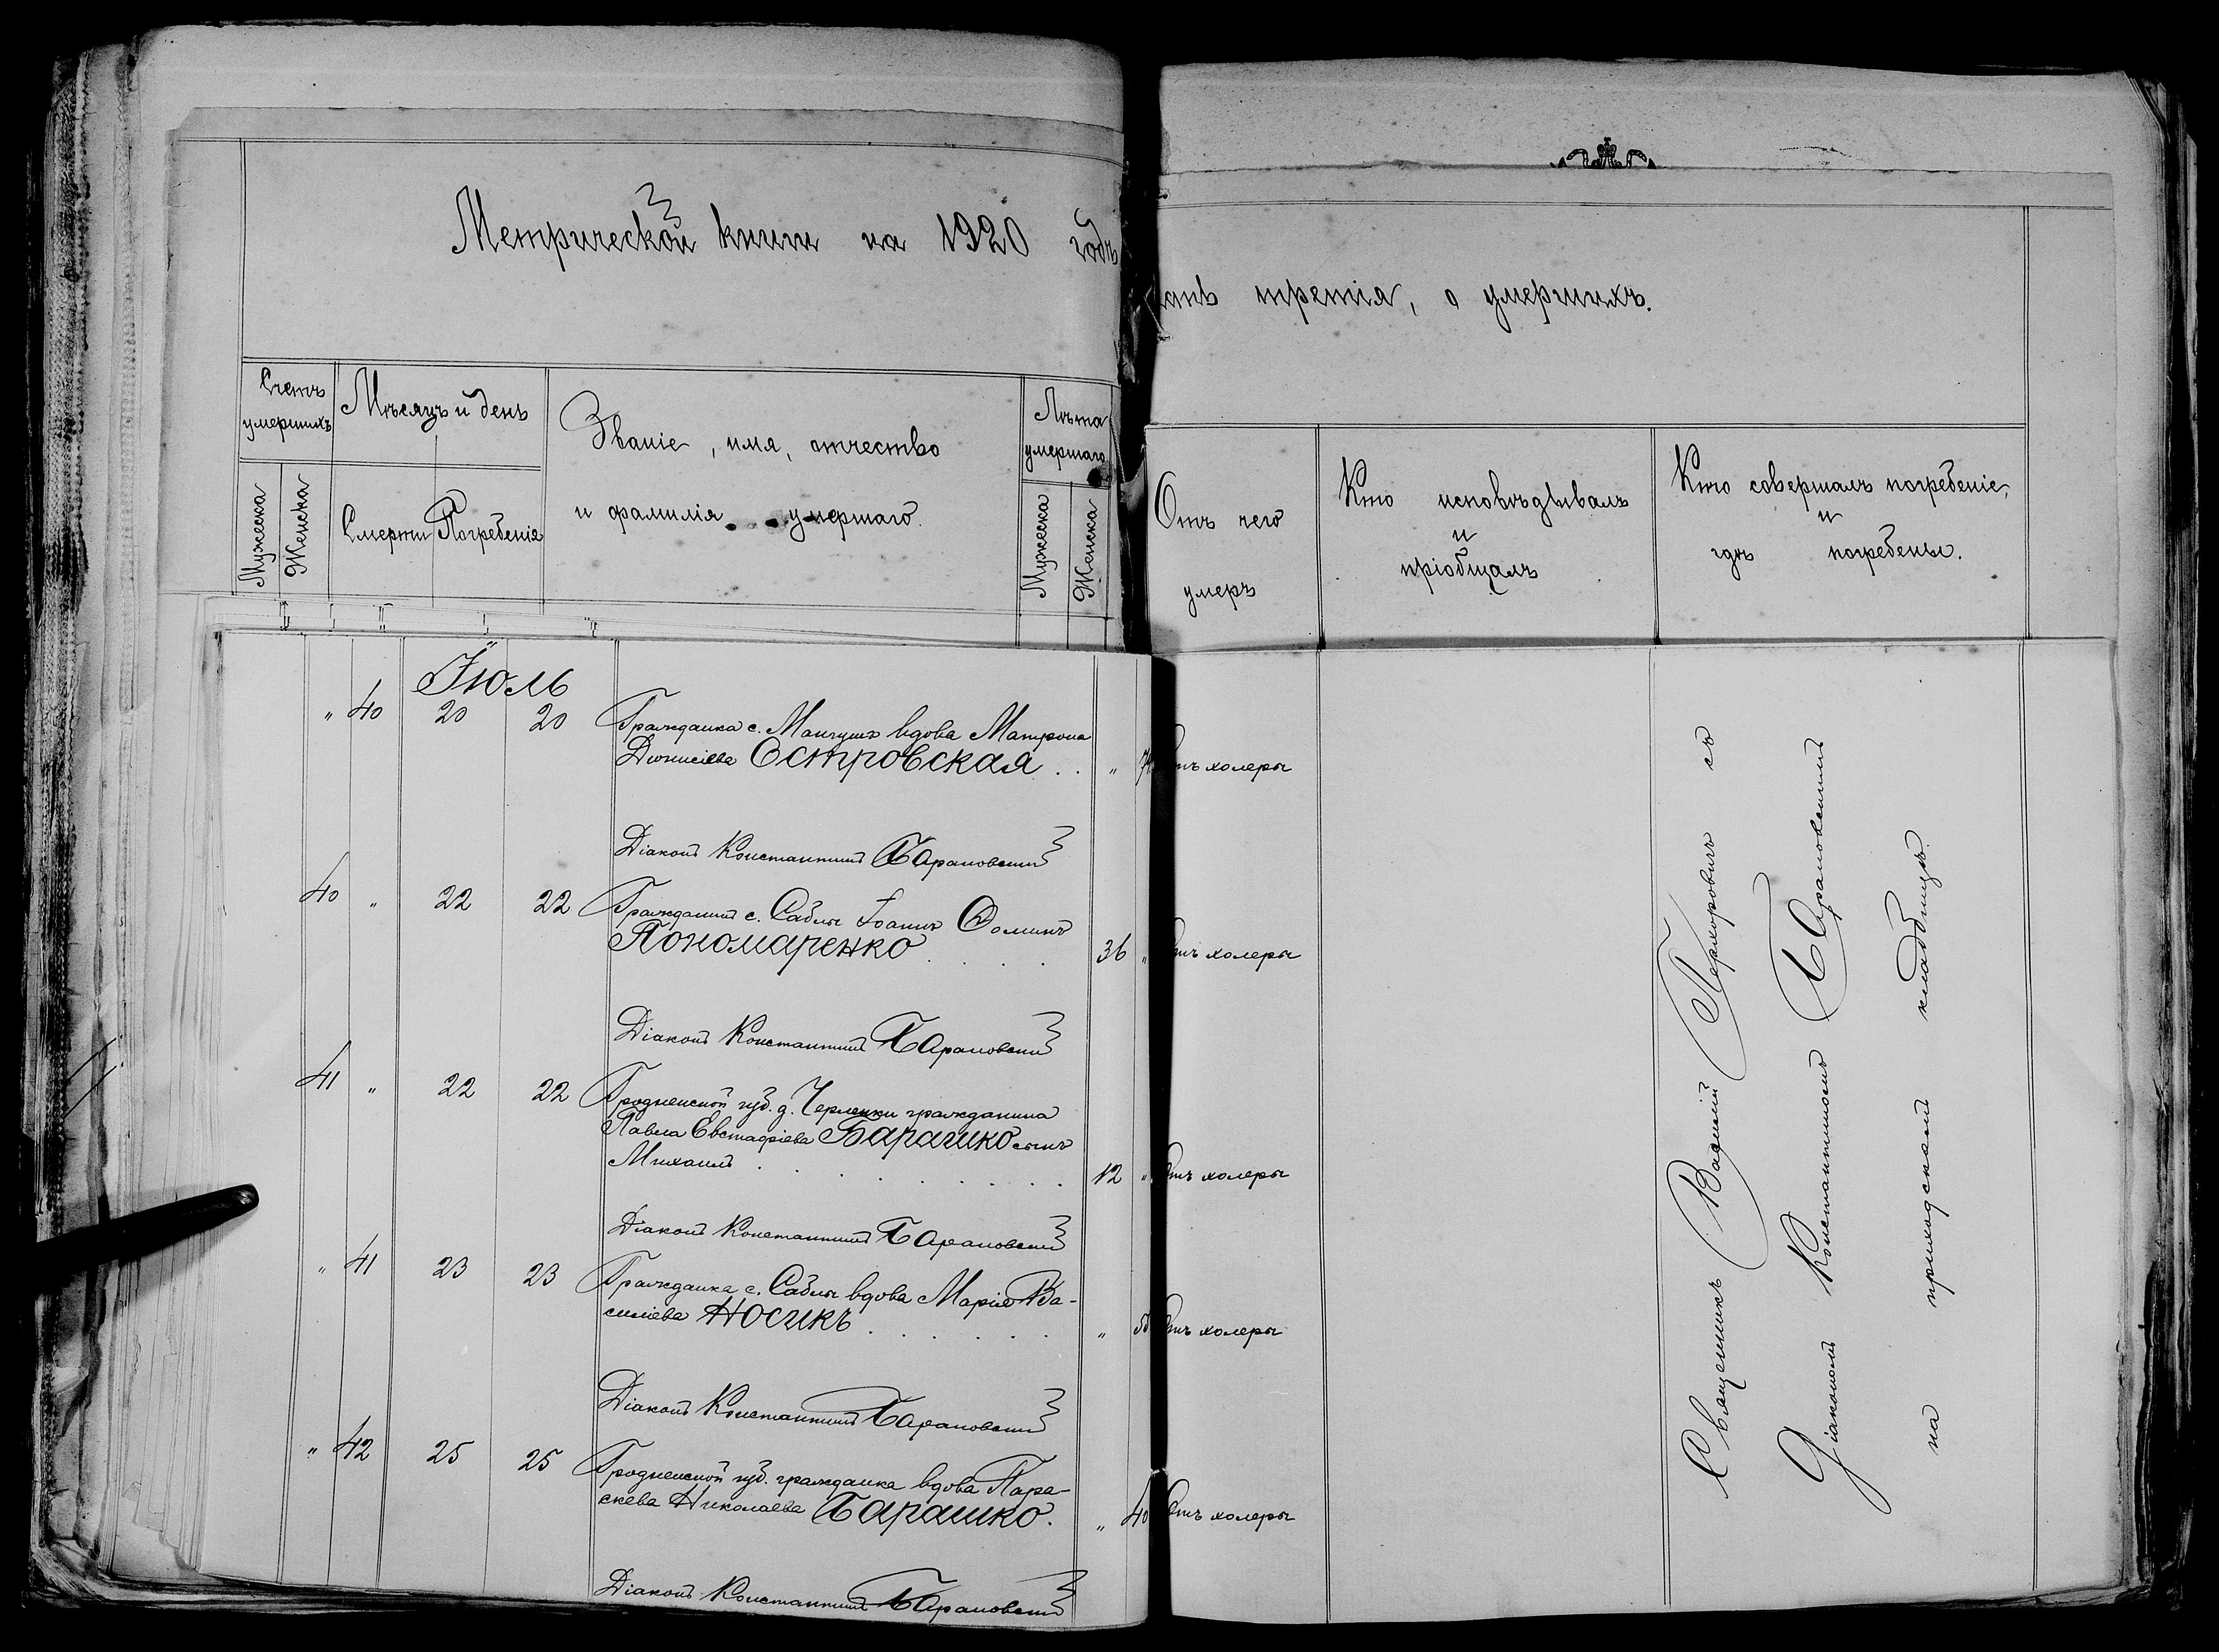 Метрической книги на 1920 годъ
третія, о умершихъ.
Счетъ умершихъ
Мужеска
Женска
Мѣсяцъ и день
Смерти
Погребенія
Званіе, имя, отчество
и фамилія умершаго.
Лѣта умершаго
Мужеска
Женска
Отъ чего
умеръ
Кто исповѣдывалъ
и
пріобщалъ
Кто совершалъ погребеніе,
и
гдѣ погребены.
Іюль
" 40 20 20 Гражданка с. Мангушъ вдова Матрона
Діонисіева Островская . . " отъ холеры
Діаконъ Константинъ Барановскій
40 " 22 22 Гражданинъ с. Саблы Іоаннъ Ѳоминъ
Пономаренко . . . . 36 " отъ холеры
Діаконъ Константинъ Барановскій
41 " 22 22 Гродненской губ. д. Черленки гражданина
Павла Евстафіева Барашко сынъ
Михаилъ . . . . . . . . 12 " отъ холеры
Діаконъ Константинъ Барановскій
" 41 23 23 Гражданка с. Саблы вдова Марія Ва-
силіева Носикъ . . . . . . " отъ холеры
Діаконъ Константинъ Барановскій
" 42 25 25 Гродненской губ. гражданка вдова Пара-
скева Николаева Барашко. " 40 отъ холеры
Діаконъ Константинъ Барановскій
Священникъ Василій съ
Діакономъ Константиномъ Барановскимъ
на приходскомъ кладбищѣ.